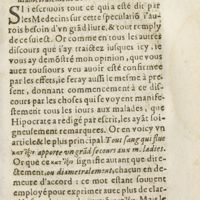 SI iescriuois tout ce qui a esté dit par
les Medecins sur cette speculatiõ, i'au-
rois besoin d'vn grãd liure, & tout remply
de ce suiect. Or comme en tous les autres
discours que i'ay traictez iusques icy, ie
vous ay demõstré mon opinion, que vous
auez tousiours veu auoir esté confirmée
par les effets, ie feray aussi le mesme à pre-
sent, donnant commencement à ce dis-
cours par les choses qui se voyent mani-
festement tous les iours aux malades, que
Hipocrate a redigé par escrit, & les ayãt soi-
gneusement remarquees. Or en voicy vn
article & le plus principal. Tout sang qui flue
apporte vn grãd secours aux maladies.
Or que ce signifie autant que dire-
ctement, ou diametralement, chacun en
demeure d'accord: ce mot estant souuent
employé pour exprimer auec plus de clar-